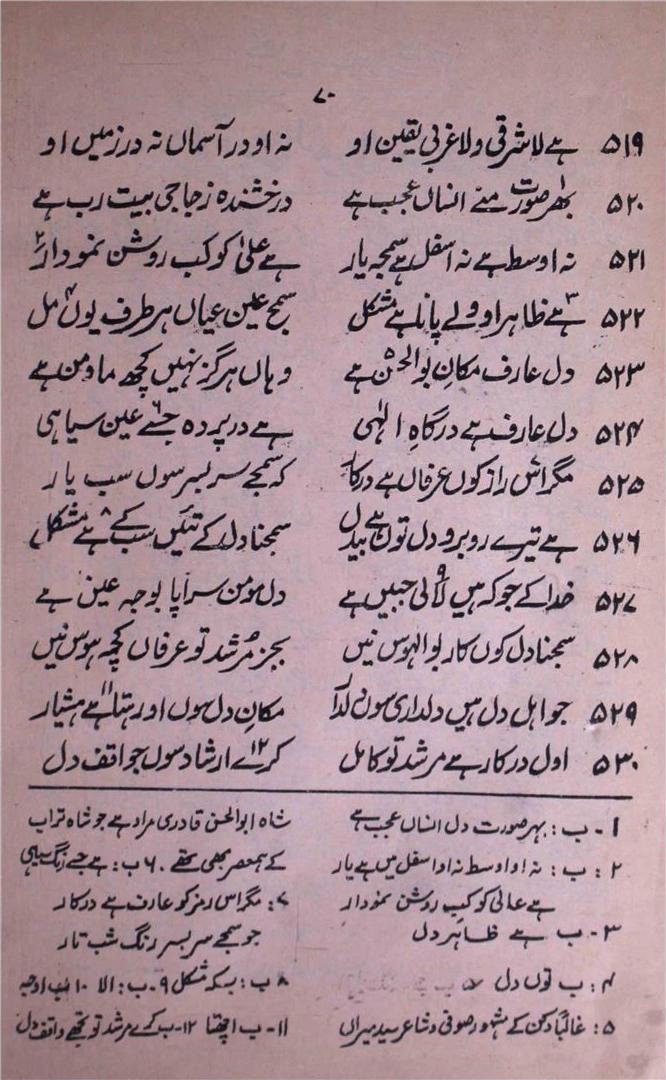 ۷۰
۵۱۹ ہے لا شرقی ولا غربی یقین او نہ او در آسماں نہ در زمیں او
۵۲۰ بھر صورت منے انساں عجب ہے درخشندہ زجاجی بیت رب ہے
۵۲۱ نہ اوسط ہے نہ اسفل ہے سمجہ یار ہے علیٰ کو کب روشن نمودار۲
۵۲۲ ہے۳ ظاہر او ولے پانا ہے مشکل سمج عین عیاں ہر طرف یوں۴ مل
۵۲۳ دل عارف مکانِ بوالحسن۵ ہے وہاں ہرگز نہیں کچھ ما و من ہے
۵۲۴ دل عارف ہے درگاہِ الٰہی ہے در پردہ جسے۶ عین سیاہی
۵۲۵ مگر اس راز کوں عرفاں ہے درکار کہ سمجے سر بسر سوں سب یار
۵۲۶ ہے تیرے روبرو دل توں ہے بیدل سمجنا دل کے تئیں سب کے۸ ہے مشکل
۵۲۷ خدا کے جو کہ ہیں لا۹لی جبیں ہے دل مومن سراپا بوجہ عین ہے
۵۲۸ سمجنا دل کوں کار بوالہوس نیں بجز مُرشد تو عرفاں کچہ ہوس نیں
۵۲۹ جو اہل دل ہیں دلداری سوں دلدار مکانِ دل سوں او رہتا۱۱ ہے ہشیار
۵۳۰ اول درکار ہے مرشد تو کامل کرے۱۲ ارشاد سوں جو اقف دل
۱- ب : بہر صورت دل انساں عجب ہے
۲ : ب : نہ او اوسط نہ او اسفل میں ہے یار
ہے عالی کو کب روشن نمودار
۳- ب ہے ظاہر دل
۴ : ب توں دل
۵ : غالباً دکن کے مشہور صوفی و شاعر سید میراں
شاہ ابوالحسن قادری مراد ہے جو شاہ تراب
کے ہمعصر بھی تھے . ۶ ب : ہے جسے رنگ سیاہی
۷ : مگر اس رمز کو عارف ہے درکار
جو سمجے سر بسر رنگ شب تار
۸ ب : بسکہ مشکل ۹- ب : الا ۱۰
۱۱- ب اچھتا ۱۲- ب کرے مرشد تو تجھے واقف دل